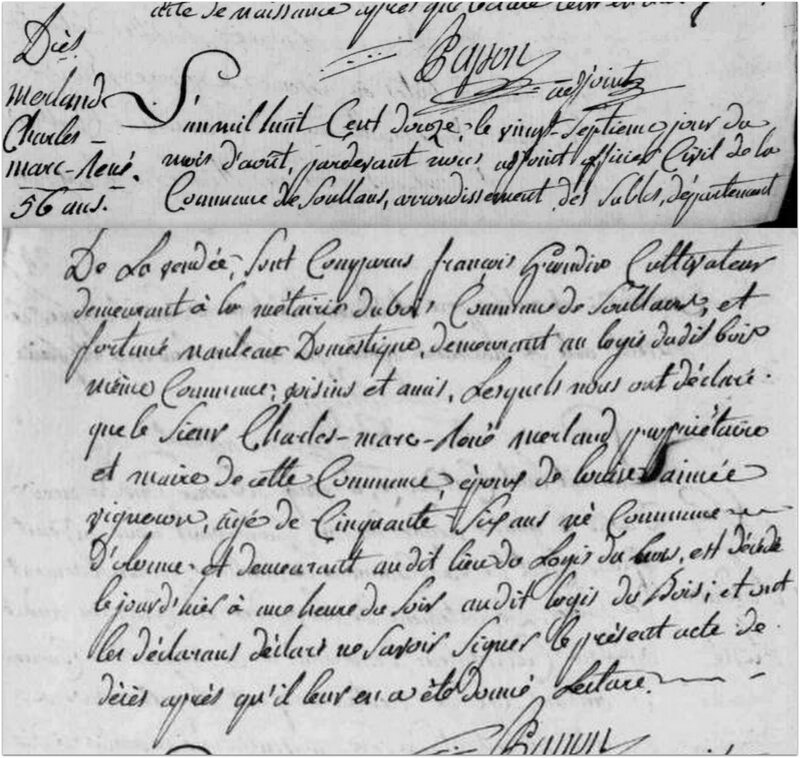 acte de naissance après que lecture leur en
Papon
adjoint
Décès.
Merland
Charles-
marc-René.
56 ans.
L'an mil huit Cent douze, le vingt-Septième jour du
mois d'août, pardevant nous, adjoint officier Civil de la
Commune de Soullans, arrondissement des Sables, département
De La vendée, Sont Comparus françois Grondin Cultivateur
demeurant à la métairie du bois Commune de Soullans, et
fortuné nauleau Domestique, demeurant au logis dudit bois
même Commune, voisins et amis, Lesquels nous ont déclaré
que le Sieur Charles-marc-René merland propriétaire
et maire de cette Commune, époux de louise aimée
vigneron, âgé de Cinquante Six ans né Commune
d'olonne et demeurant audit lieu du Logis du bois, est décédé
le jour d'hier à une heure du Soir audit logis du Bois; et ont
les déclarans déclaré ne Savoir Signer le présent acte de
décès après qu'il leur en a été donné Lecture.
Papon